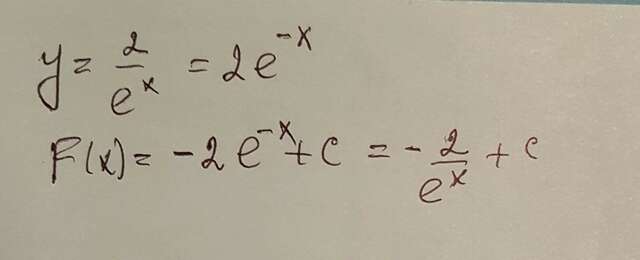 y = 2/eˣ = 2e⁻ˣ
F(x) = -2e⁻ˣ + c = -2/eˣ + c